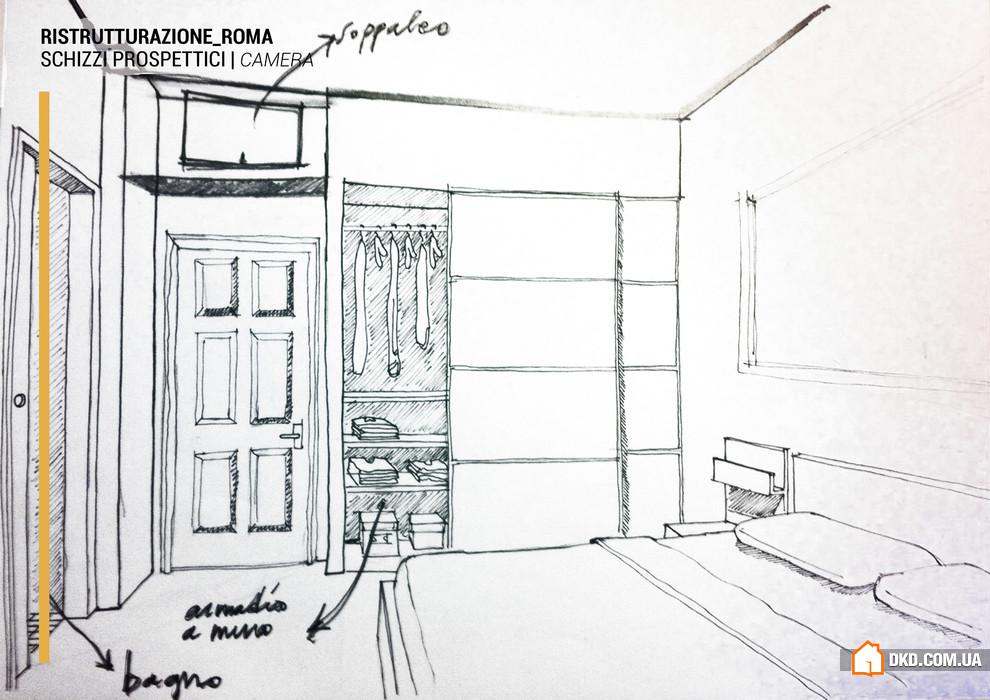 RISTRUTTURAZIONE_ROMA
SCHIZZI PROSPETTICI | CAMERA
soppalco
armadio
a muro
bagno
DKD.COM.UA